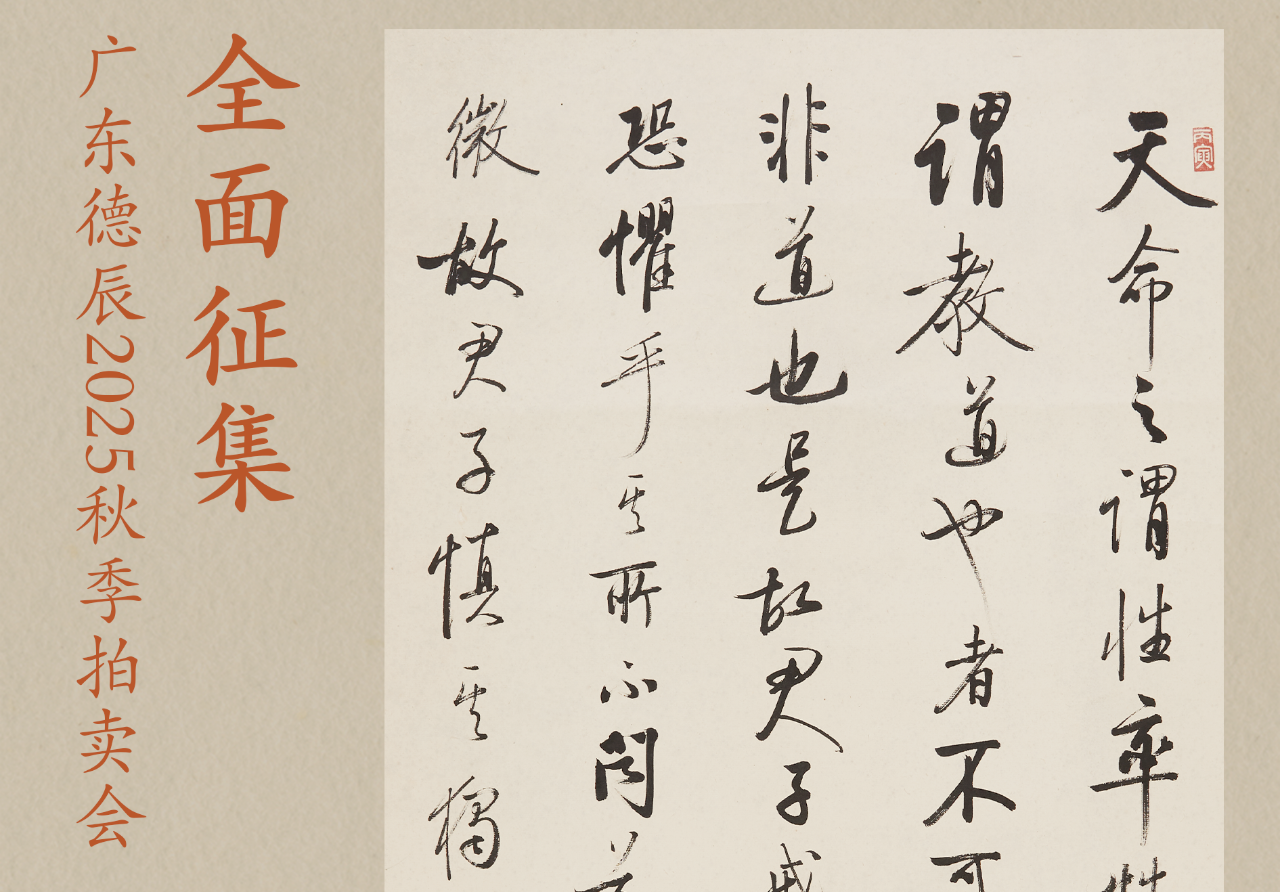 全面征集
广东德辰2025秋季拍卖会
丙寅
天命之謂性率性
謂教道也者不可
非道也是故君子戒
恐懼乎其所不聞莫
微故君子慎其獨